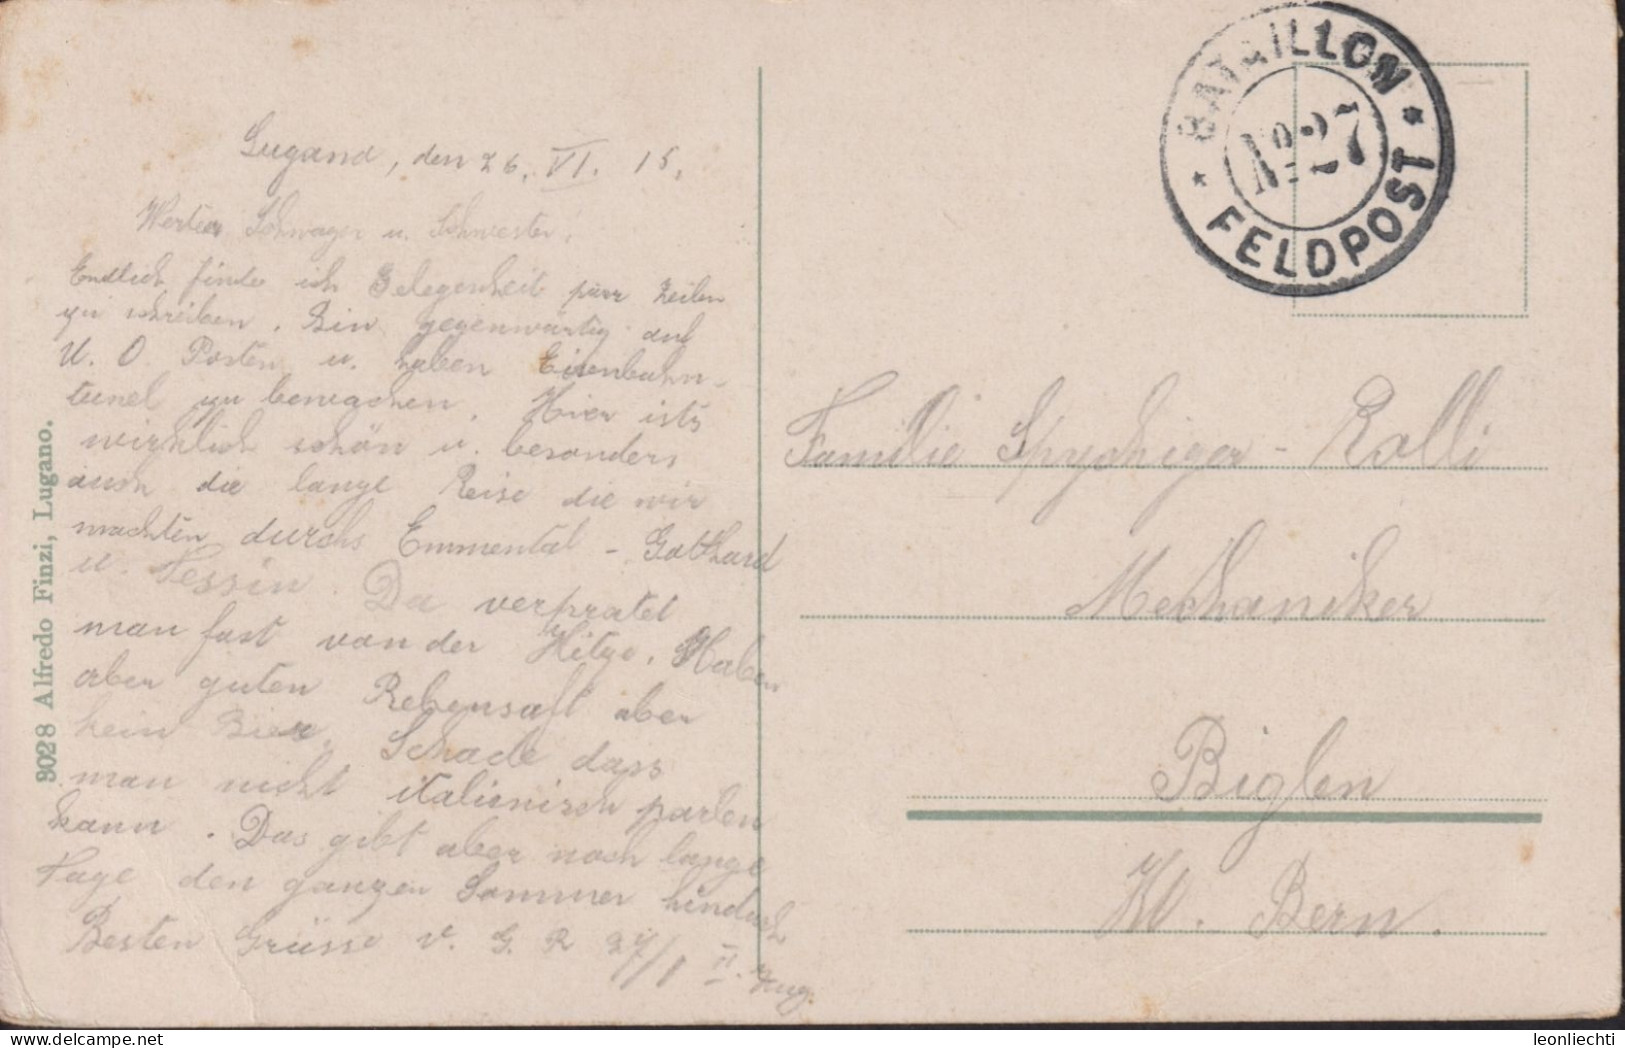 Lugano, den 26. VI. 15.
Werter Schwager u. Schwester!
Endlich finde ich Gelegenheit paar Zeilen
zu schreiben. Bin gegenwärtig auf
U. O. Posten u. haben Eisenbahn-
tunel zu bewachen. Hier ists
wirklich schön u. besonders
auch die lange Reise die wir
machten durchs Emmental - Gotthard
u. Tessin. Da verpratet
man fast von der Hitze. Haben
aber guten Rebensaft aber
kein Bier. Schade dass
man nicht italienisch parlen
kann. Das gibt aber noch lange
Tage den ganzen Sommer hindurch
Besten Grüsse v. G. R. 27/I II. Zug.
9028 Alfredo Finzi, Lugano.
BATAILLON
No 27
FELDPOST
Familie Spychiger - Rolli
Mechaniker
Biglen
Kt. Bern.
leonliechti